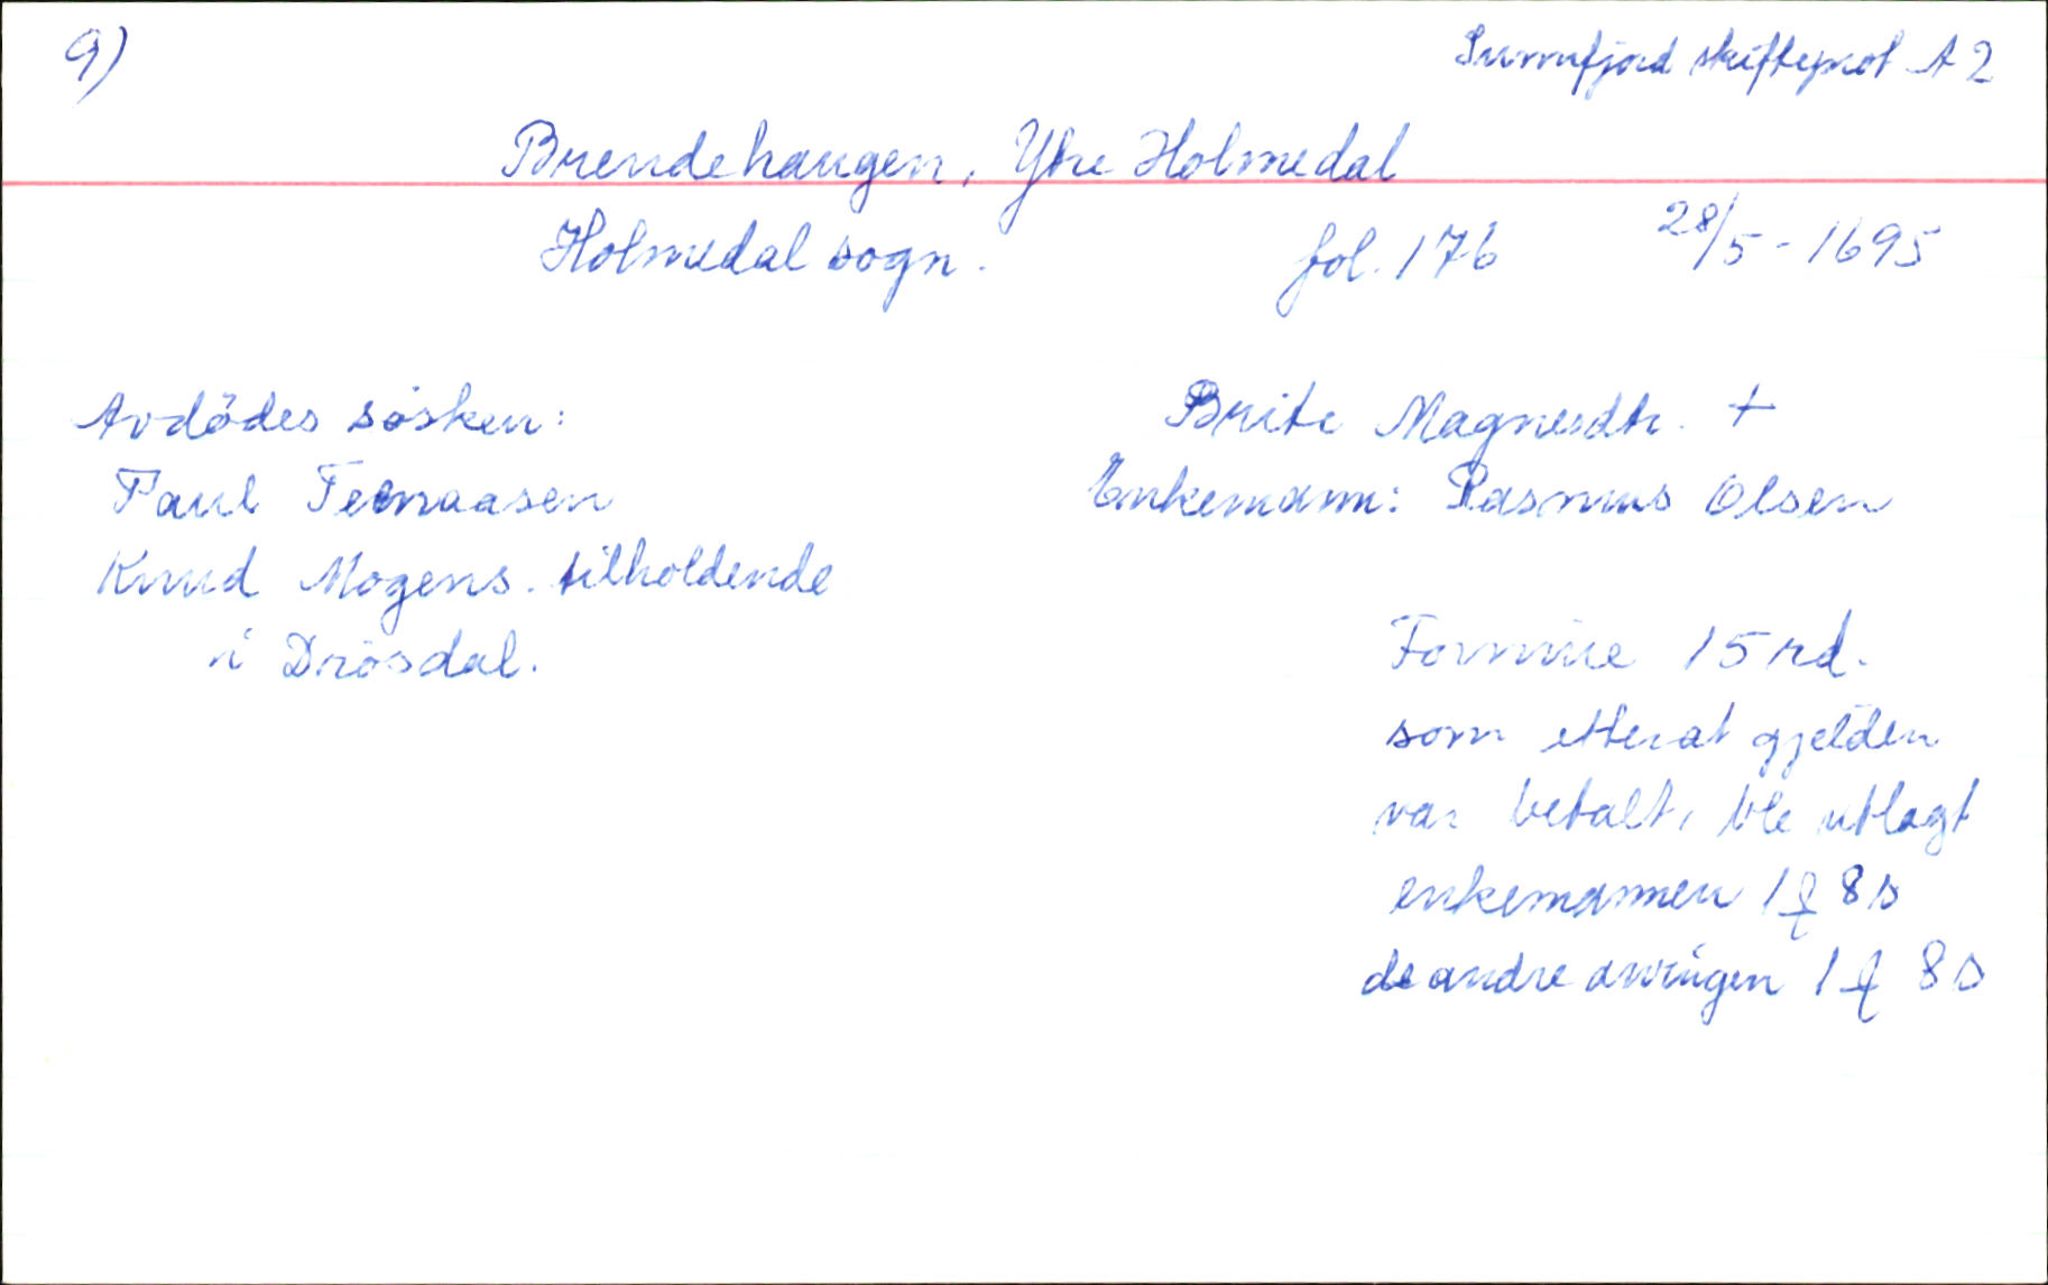 9)
Sunnfjord skifteprot A 2
Brendehaugen, Ytre Holmedal
Holmedal sogn. fol. 176 28/5 - 1695
Avdödes sösken:
Paul
Knud Mogens. tilholdende
i Drösdal.
Brite Magnesdtr. +
Enkemann: Rasmus Olsen
Formue 15 rd.
som etterat gjelden
var betalt, ble utlagt
enkemannen 1 8 s
de andre arvingen 1 8 s